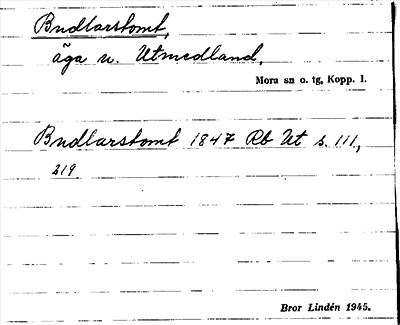 Budtarstomt,
äga u. Utmedland,
Mora sn o. tg, Kopp. l.
Budtarstomt 1847 Rb Ut s. 111,
219
Bror Lindén 1945.